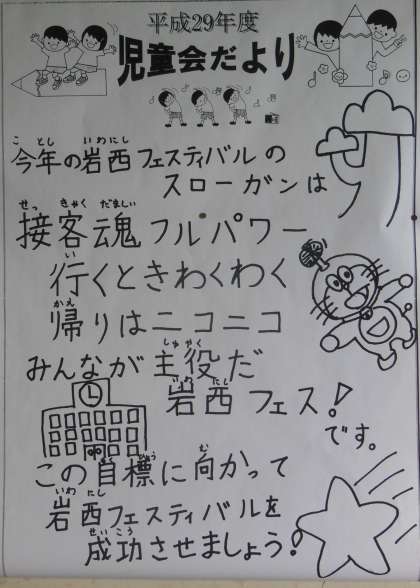 平成29年度
児童会だより
今年の岩西フェスティバルの
スローガンは
接客魂フルパワー
行くときわくわく
帰りはニコニコ
みんなが主役だ
岩西フェス!
です。
この目標に向かって
岩西フェスティバルを
成功させましょう!